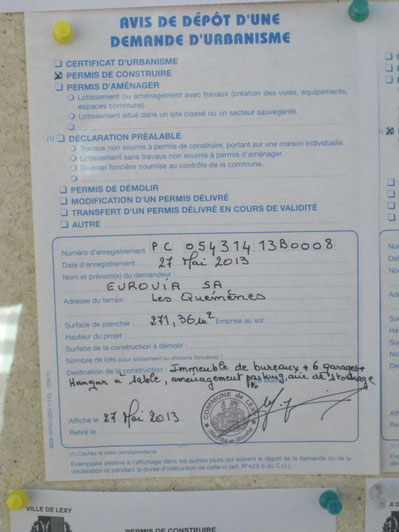 AVIS DE DÉPÔT D'UNE
DEMANDE D'URBANISME
CERTIFICAT D'URBANISME
PERMIS DE CONSTRUIRE
PERMIS D'AMÉNAGER
Lotissement ou aménagement avec travaux (création des voies, équipements,
espaces communs).
Lotissement situé dans un site classé ou un secteur sauvegardé.
(1) DÉCLARATION PRÉALABLE
Travaux non soumis à permis de construire, portant sur une maison individuelle.
Lotissement sans travaux non soumis à permis d'aménager.
Division foncière soumise au contrôle de la commune.
PERMIS DE DÉMOLIR
MODIFICATION D'UN PERMIS DÉLIVRÉ
TRANSFERT D'UN PERMIS DÉLIVRÉ EN COURS DE VALIDITÉ
AUTRE
Numéro d'enregistrement : PC 054314 13B0008
Date d'enregistrement : 27 Mai 2013
Nom et prénom(s) du demandeur :
EUROVIA SA
Adresse du terrain : Les Quemènes
Surface de plancher : 271,36m² Emprise au sol :
Hauteur du projet :
Surface de la construction à démolir :
Nombre de lots (pour lotissement ou divisions foncières) :
Destination de la construction : Immeuble de bureaux + 6 garages+
Hangar à sable, aménagement parking, aire de stockage
COMMUNE DE LEXY
Affiché le 27 Mai 2013
Retiré le
(1) Cochez la case correspondante
Exemplaire destiné à l'affichage dans les quinze jours qui suivent le dépôt de la demande ou de la
déclaration et pendant la durée d'instruction de celle-ci (art. R*423-6 du C.U.).
VILLE DE LEXY
PERMIS DE CONSTRUIRE